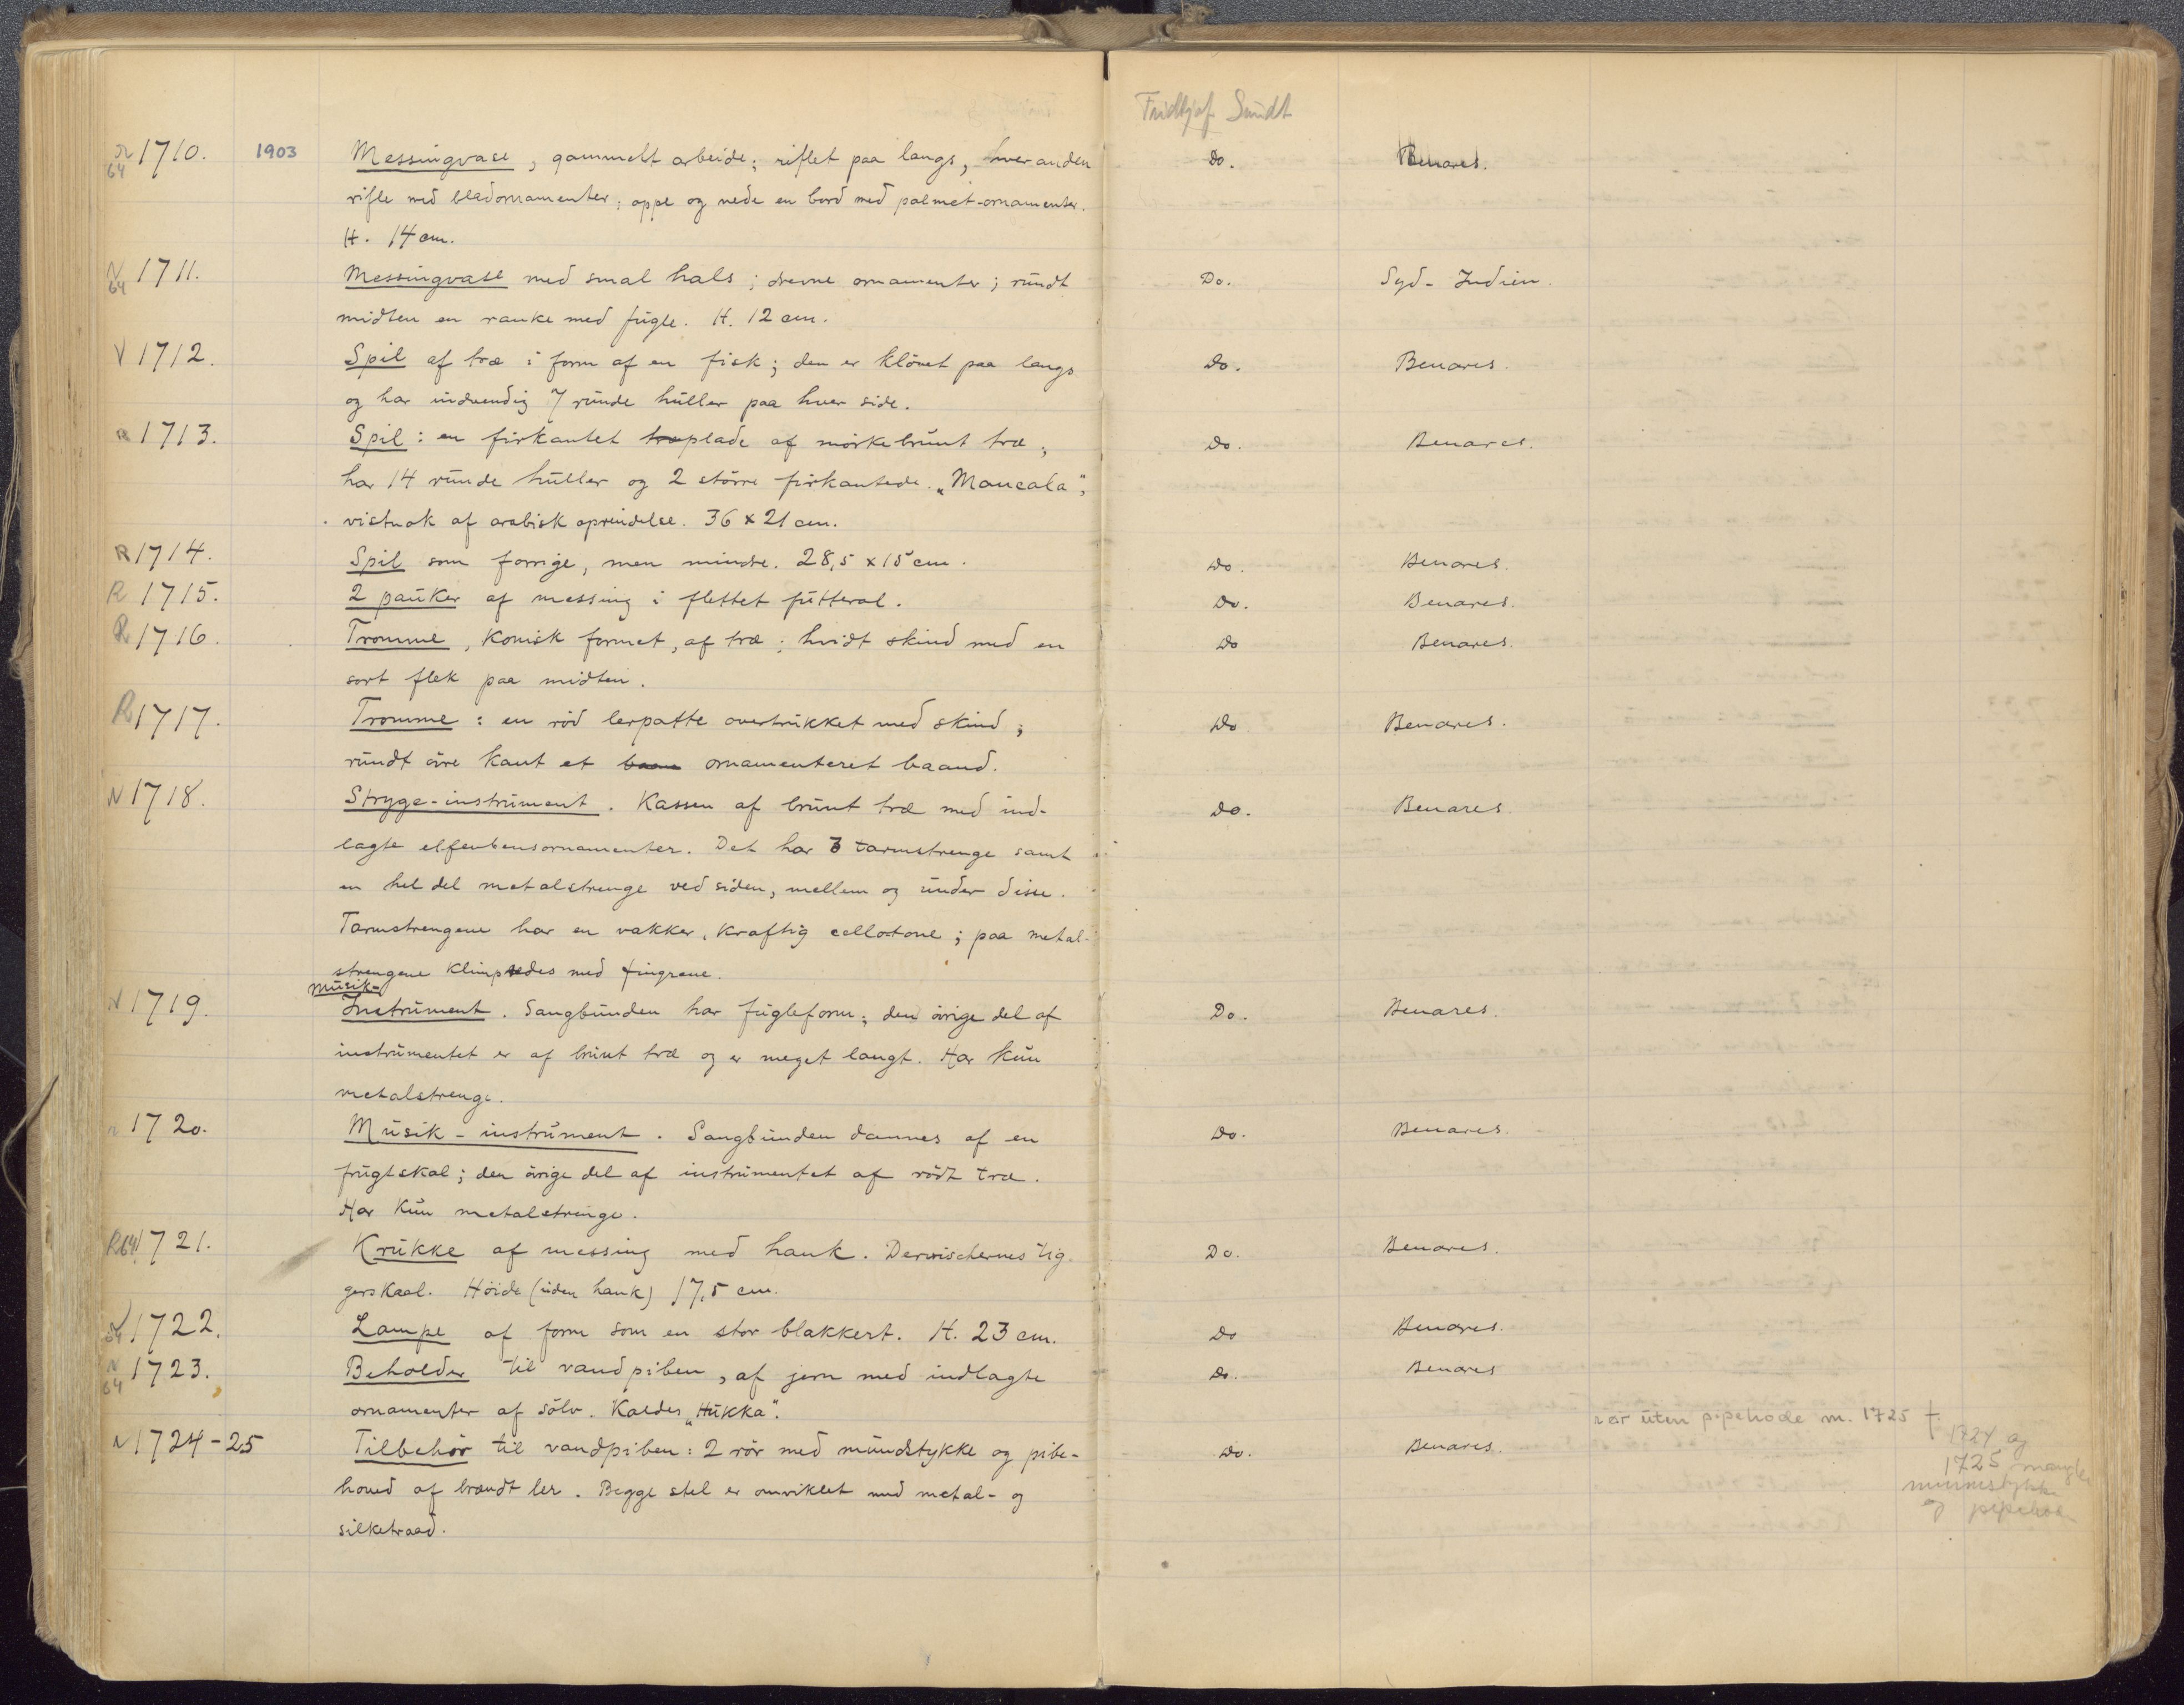 Fridtjof Sundt
N 64 1710. 1903 Messingvase, gammelt arbeide; riflet paa langs, hver anden Do. Benares.
rifle med bladornamenter; oppe og nede en bord med palmet-ornamenter.
H. 14 cm.
N 64 1711. Messingvase med smal hals; drevne ornamenter; rundt Do. Syd-Indien.
midten en ranke med fugle. H. 12 cm.
V 1712. Spil af træ i form af en fisk; den er klövet paa langs Do. Benares.
og har indvendig 7 runde huller paa hver side.
R 1713. Spil: en firkantet træplade af mörkebrunt træ; Do. Benares.
har 14 runde huller og 2 större firkantede. „Mancala“,
vistnok af arabisk oprindelse. 36 x 21 cm.
R 1714. Spil som forrige, men mindre. 28,5 x 15 cm. Do. Benares.
R 1715. 2 pauker af messing i flettet futteral. Do. Benares.
R 1716. Tromme, konisk formet, af træ; hvidt skind med en Do Benares.
sort flek paa midten.
R 1717. Tromme: en röd lerpotte overtrukket med skind; Do Benares.
rundt övre kant et ornamenteret baand.
N 1718. Stryge-instrument. Kassen af brunt træ med ind- Do. Benares.
lagte elfenbensornamenter. Det har 3 tarmstrenge samt
en hel del metalstrenge ved siden, mellem og under disse.
Tarmstrengene har en vakker, kraftig cellotone; paa metal-
strengene klimpredes med fingrene.
N 1719. Musik-Instrument. Sangbunden har fugleform; den övrige del af Do. Benares.
instrumentet er af brunt træ og er meget langt. Har kun
metalstrenge.
N 1720. Musik-instrument. Sangbunden dannes af en Do. Benares.
frugtskal; den övrige del af instrumentet af rödt træ.
Har kun metalstrenge.
R 64 1721. Krukke af messing med hank. Derwischernes tig- Do. Benares.
gerskaal. Höide (uden hank) 17,5 cm.
64 1722. Lampe af form som en stor blakkert. H. 23 cm. Do Benares.
N 64 1723. Beholder til vandpiben, af jern med indlagte Do. Benares
ornamenter af sölv. Kaldes „Hukka“.
uten pipehode m. 1725 †
N 1724-25 Tilbehör til vandpiben: 2 rör med mundstykke og pibe- Do. Benares.
hoved af brændt ler. Begge stel er omviklet med metal- og
silketraad.
1724 og
1725 mangler
munnstykke
og pipehode